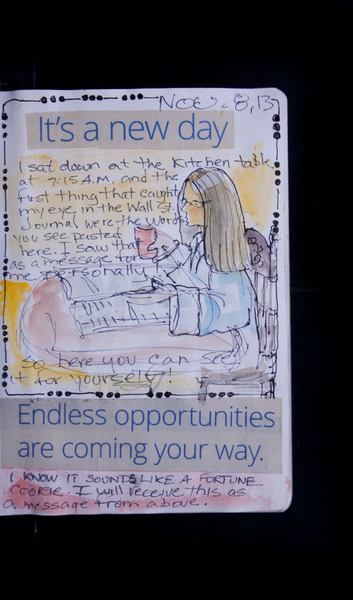 NOV. 8, 13
It's a new day
I sat down at the kitchen table
at 7:15 A.M. and the
first thing that caught
my eye in the Wall St.
Journal were the words
you see pasted
here. I saw that
as a message for
me personally
so here you can see
it for yourself!
Endless opportunities
are coming your way.
I KNOW IT SOUNDS LIKE A FORTUNE
COOKIE. I will receive this as
a message from above.